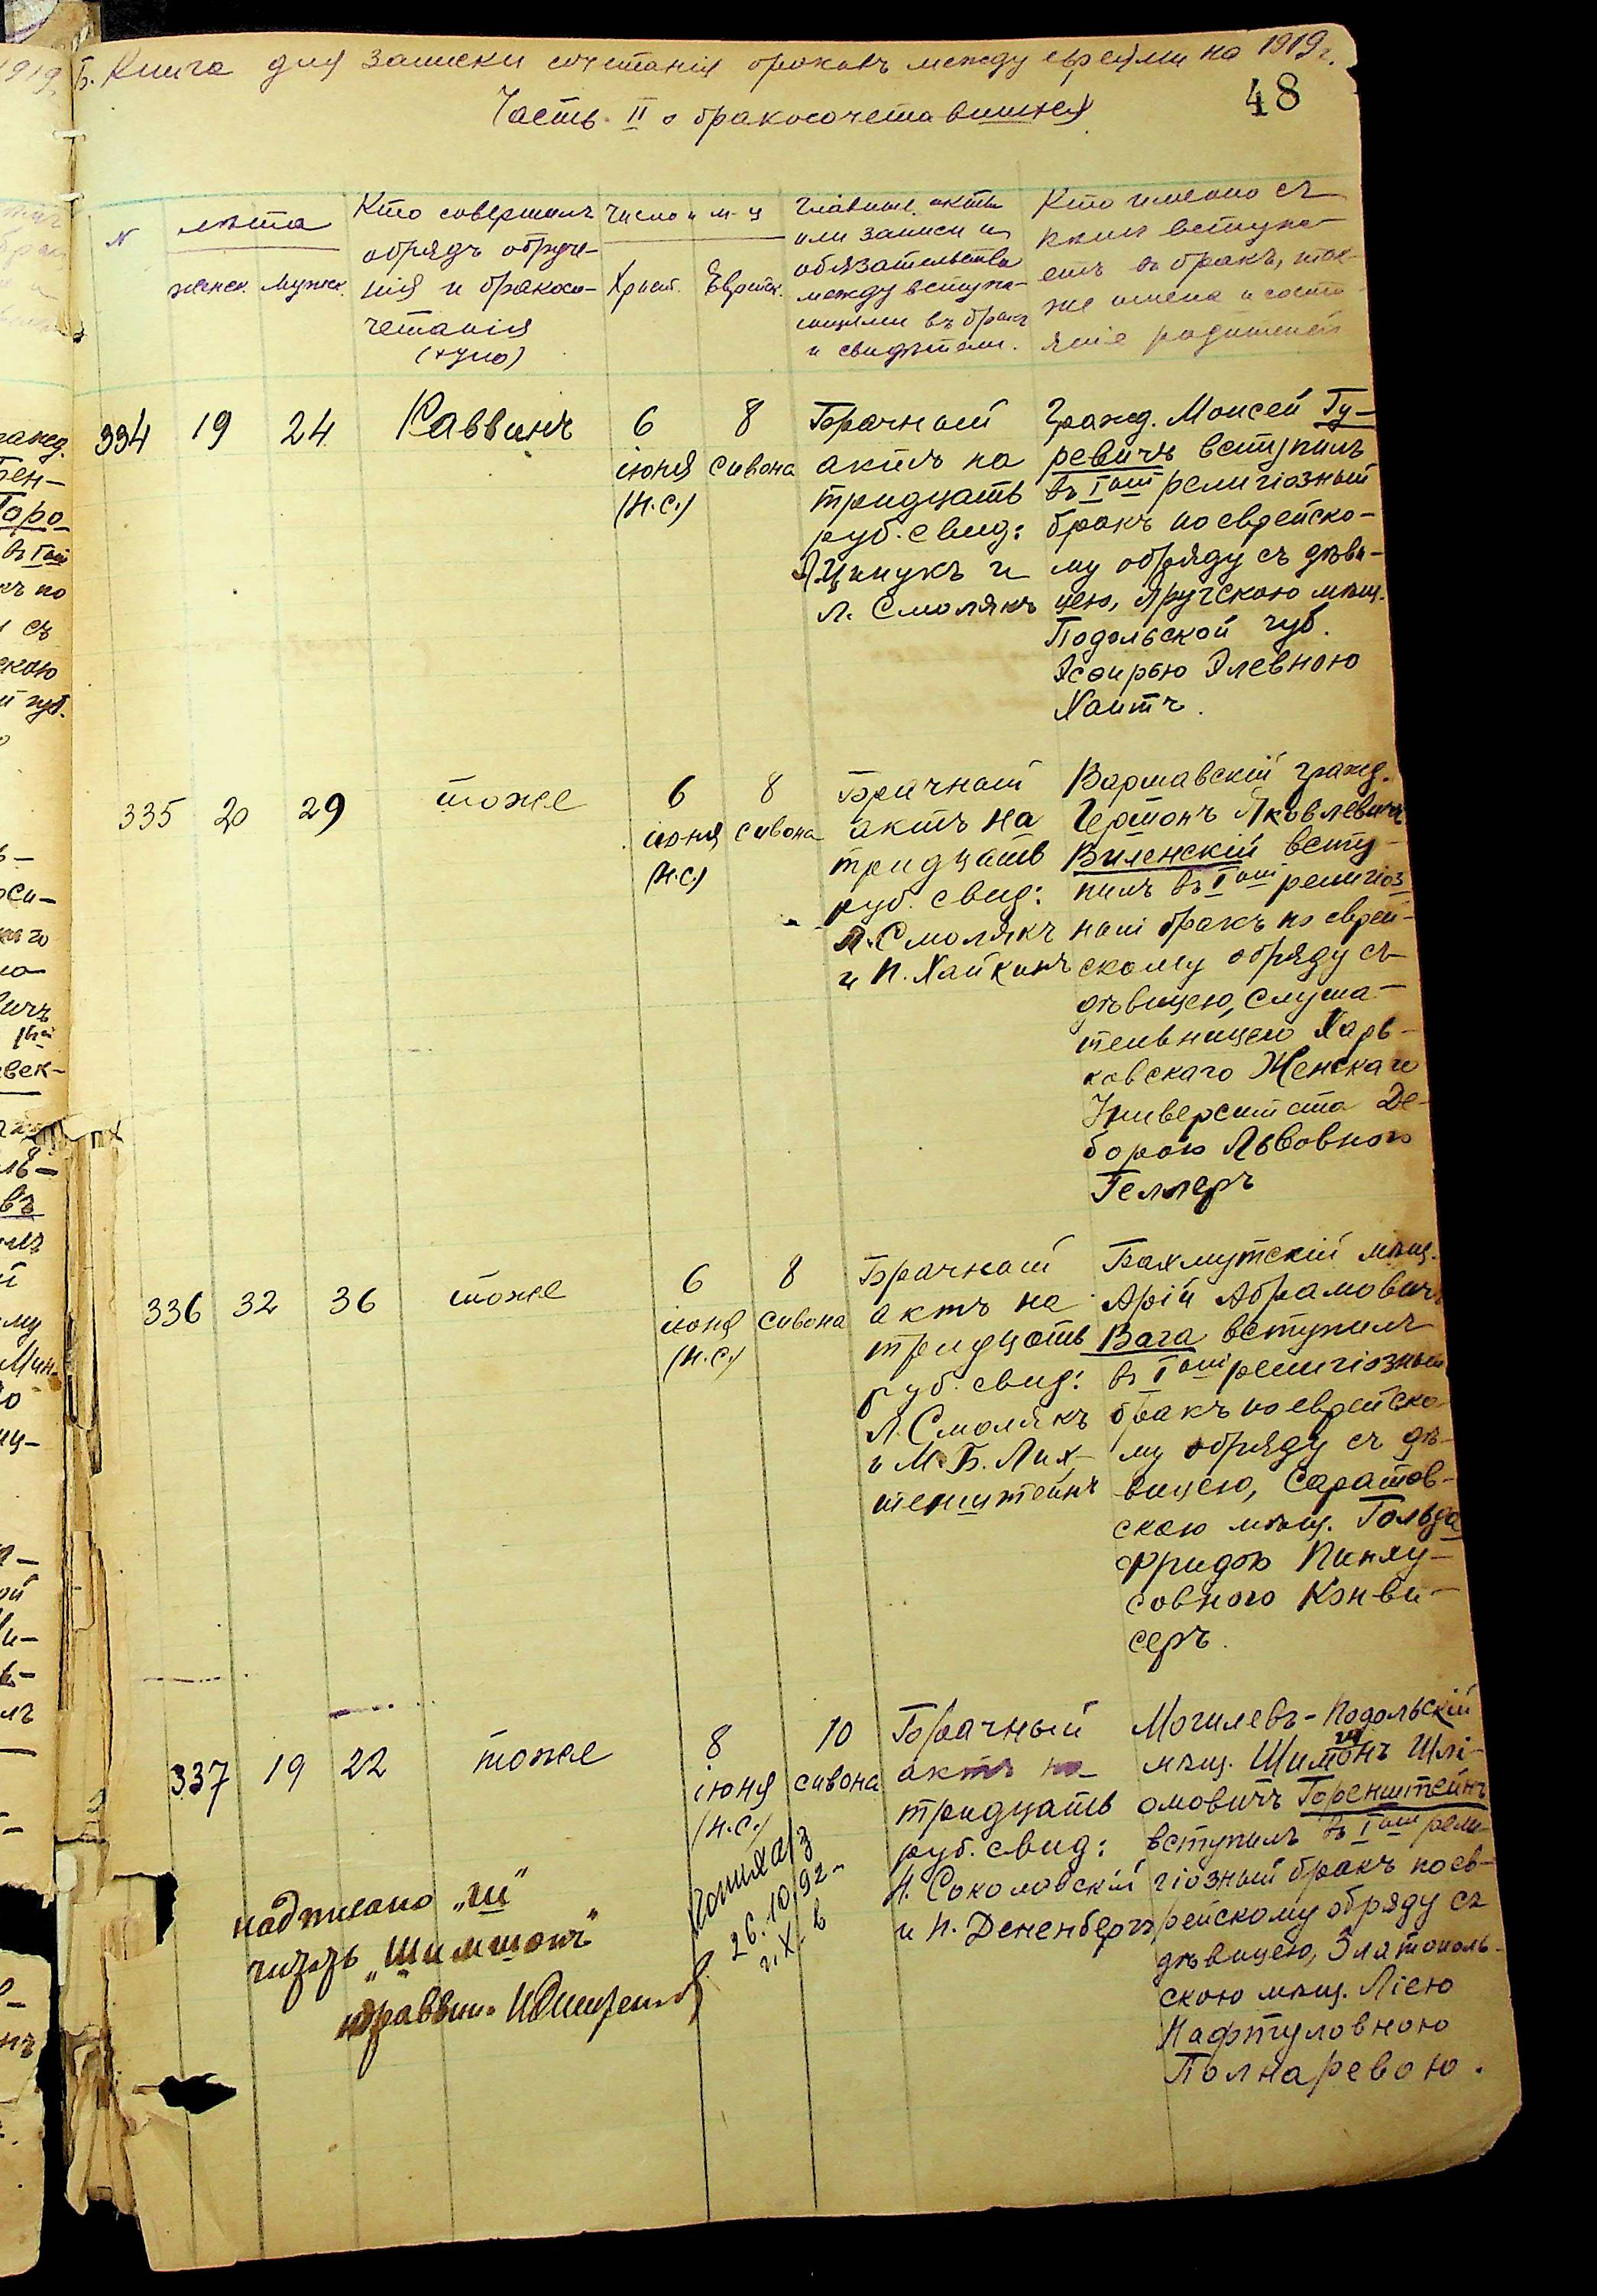 Б. Книга для записки сочетанія браковъ между евреями на 1919 г.
48
Часть II о бракосочетавшихся
№
лѣта
женск. Мужск.
Кто совершалъ
обрядъ обруче-
нія и бракосо-
четанія
(хупо)
Число и м-ц
Христ. Еврейск.
Главные акты
или записи и
обязательства
между вступа-
ющими въ бракъ
и свидѣтели.
Кто именно съ
кѣмъ вступа-
етъ въ бракъ, так-
же имена и состо-
яніе родителей
334 19 24 Раввинъ
6
іюня
(н.с.)
8
сивона
Брачный
актъ на
тридцать
руб. свид:
Цинукъ и
Л. Смолякъ
Гражд. Моисей Гу-
ревичъ вступилъ
въ I ый религіозный
бракъ по еврейско-
му обряду съ дѣви-
цею, Яругскою мѣщ.
Подольской губ.
Эсфирью Элевною
Хаитъ.
335 20 29 тоже
6
іюня
(н.с.)
8
сивона
Брачный
актъ на
тридцать
руб. свид:
Л. Смолякъ
и П. Хайкинъ
Варшавскій гражд.
Гершонъ Яковлевичъ
Виленскій всту-
пилъ въ I ый религіоз-
ный бракъ по еврей-
скому обряду съ
дѣвицею, слуша-
тельницею Харь-
ковскаго Женскаго
Университета Де-
борою Львовною
Геллеръ
336 32 36 тоже
6
іюня
(н.с.)
8
сивона
Брачный
актъ на
тридцать
руб. свид:
Л. Смолякъ
и М. Б. Лих-
тенштейнъ
Бахмутскій мѣщ.
Арій Абрамовичъ
Вага вступилъ
въ I ый религіозный
бракъ по еврейско-
му обряду съ дѣ-
вицею, Саратов-
скою мѣщ. Гольда
Фридою Пинху-
совною Кон-ви-
серъ.
337 19 22 тоже
8
іюня
(н.с.)
10
сивона
Брачный
актъ на
тридцать
руб. свид:
Н. Соколовскій
и Н. Дененбергъ
Могилевъ-Подольскій
мѣщ. Шимонъ Шлі-
ш
омовичъ Горенштейнъ
вступилъ въ I ый рели-
гіозный бракъ по ев-
рейскому обряду съ
дѣвицею, Златополь-
скою мѣщ. Ліею
Нафтуловною
Полнаревою.
надписано „ш"
читать „Шимшонъ"
раввин
26.10.92